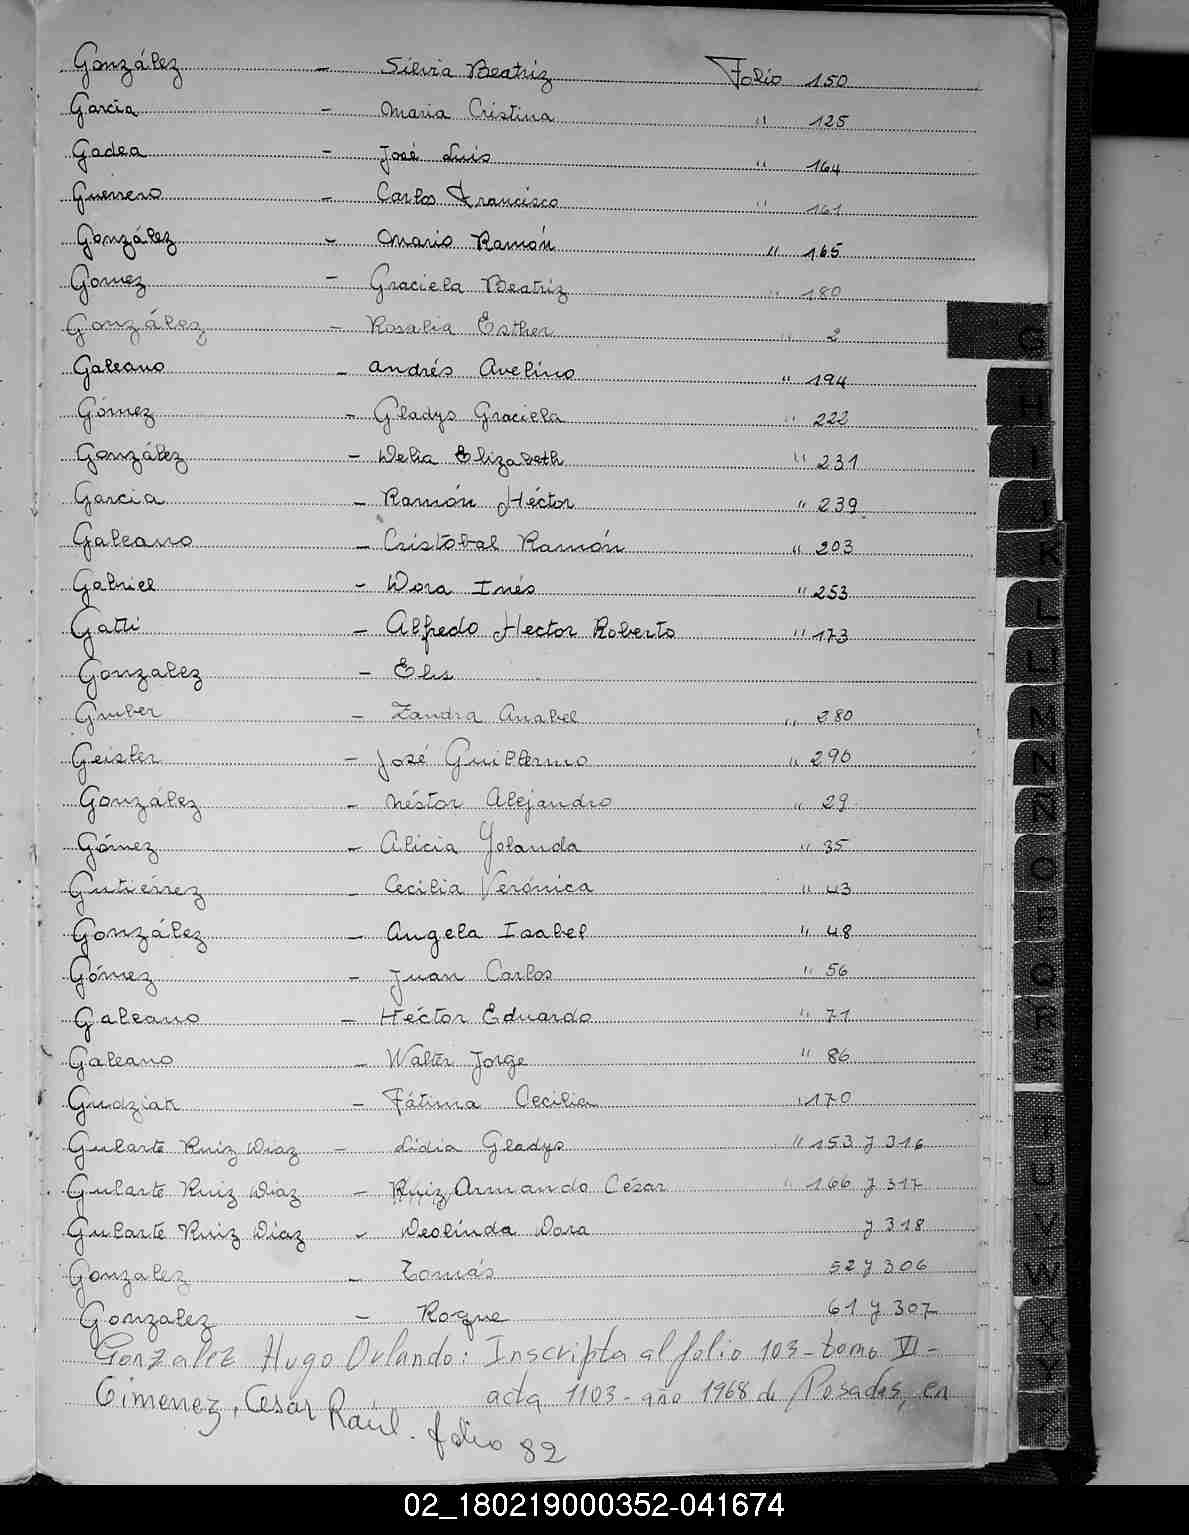 González - Silvia Beatriz Folio 150
Garcia - Maria Cristina " 125
Gadea - José Luis " 164
Guerrero - Carlos Francisco " 161
González - Mario Ramón " 165
Gomez - Graciela Beatriz " 180
González - Rosalia Esther " 2
Galeano - Andrés Avelino " 194
Gómez - Gladys Graciela " 222
González - Delia Elizabeth " 231
Garcia - Ramón Héctor " 239
Galeano - Cristobal Ramón " 203
Gabriel - Dora Inés " 253
Gatti - Alfredo Hector Roberto " 173
Gonzalez - Elis
Gruber - Zandra Anabel " 280
Geisler - José Guillermo " 290
González - Néstor Alejandro " 29
Gómez - Alicia Yolanda " 35
Gutiérrez - Cecilia Verónica " 43
González - Angela Isabel " 48
Gómez - Juan Carlos " 56
Galeano - Héctor Eduardo " 71
Galeano - Walter Jorge " 86
Gudziak - Fátima Cecilia " 170
Gularte Ruiz Diaz - Lidia Gladys " 153 y 316
Gularte Ruiz Diaz - Ruiz Armando César " 166 y 317
Gularte Ruiz Díaz - Deolinda Dora y 318
Gonzalez - Tomás 52 y 306
Gonzalez - Roque 61 y 307
Gonzalez Hugo Orlando: Inscripta al folio 103 - tomo VI -
acta 1103 - año 1968 de Posadas, en
Gimenez, Cesar Raúl. folio 82
G
H
I
J
K
L
LL
M
N
Ñ
O
P
Q
R
S
T
U
V
W
X
Y
Z
02_180219000352-041674